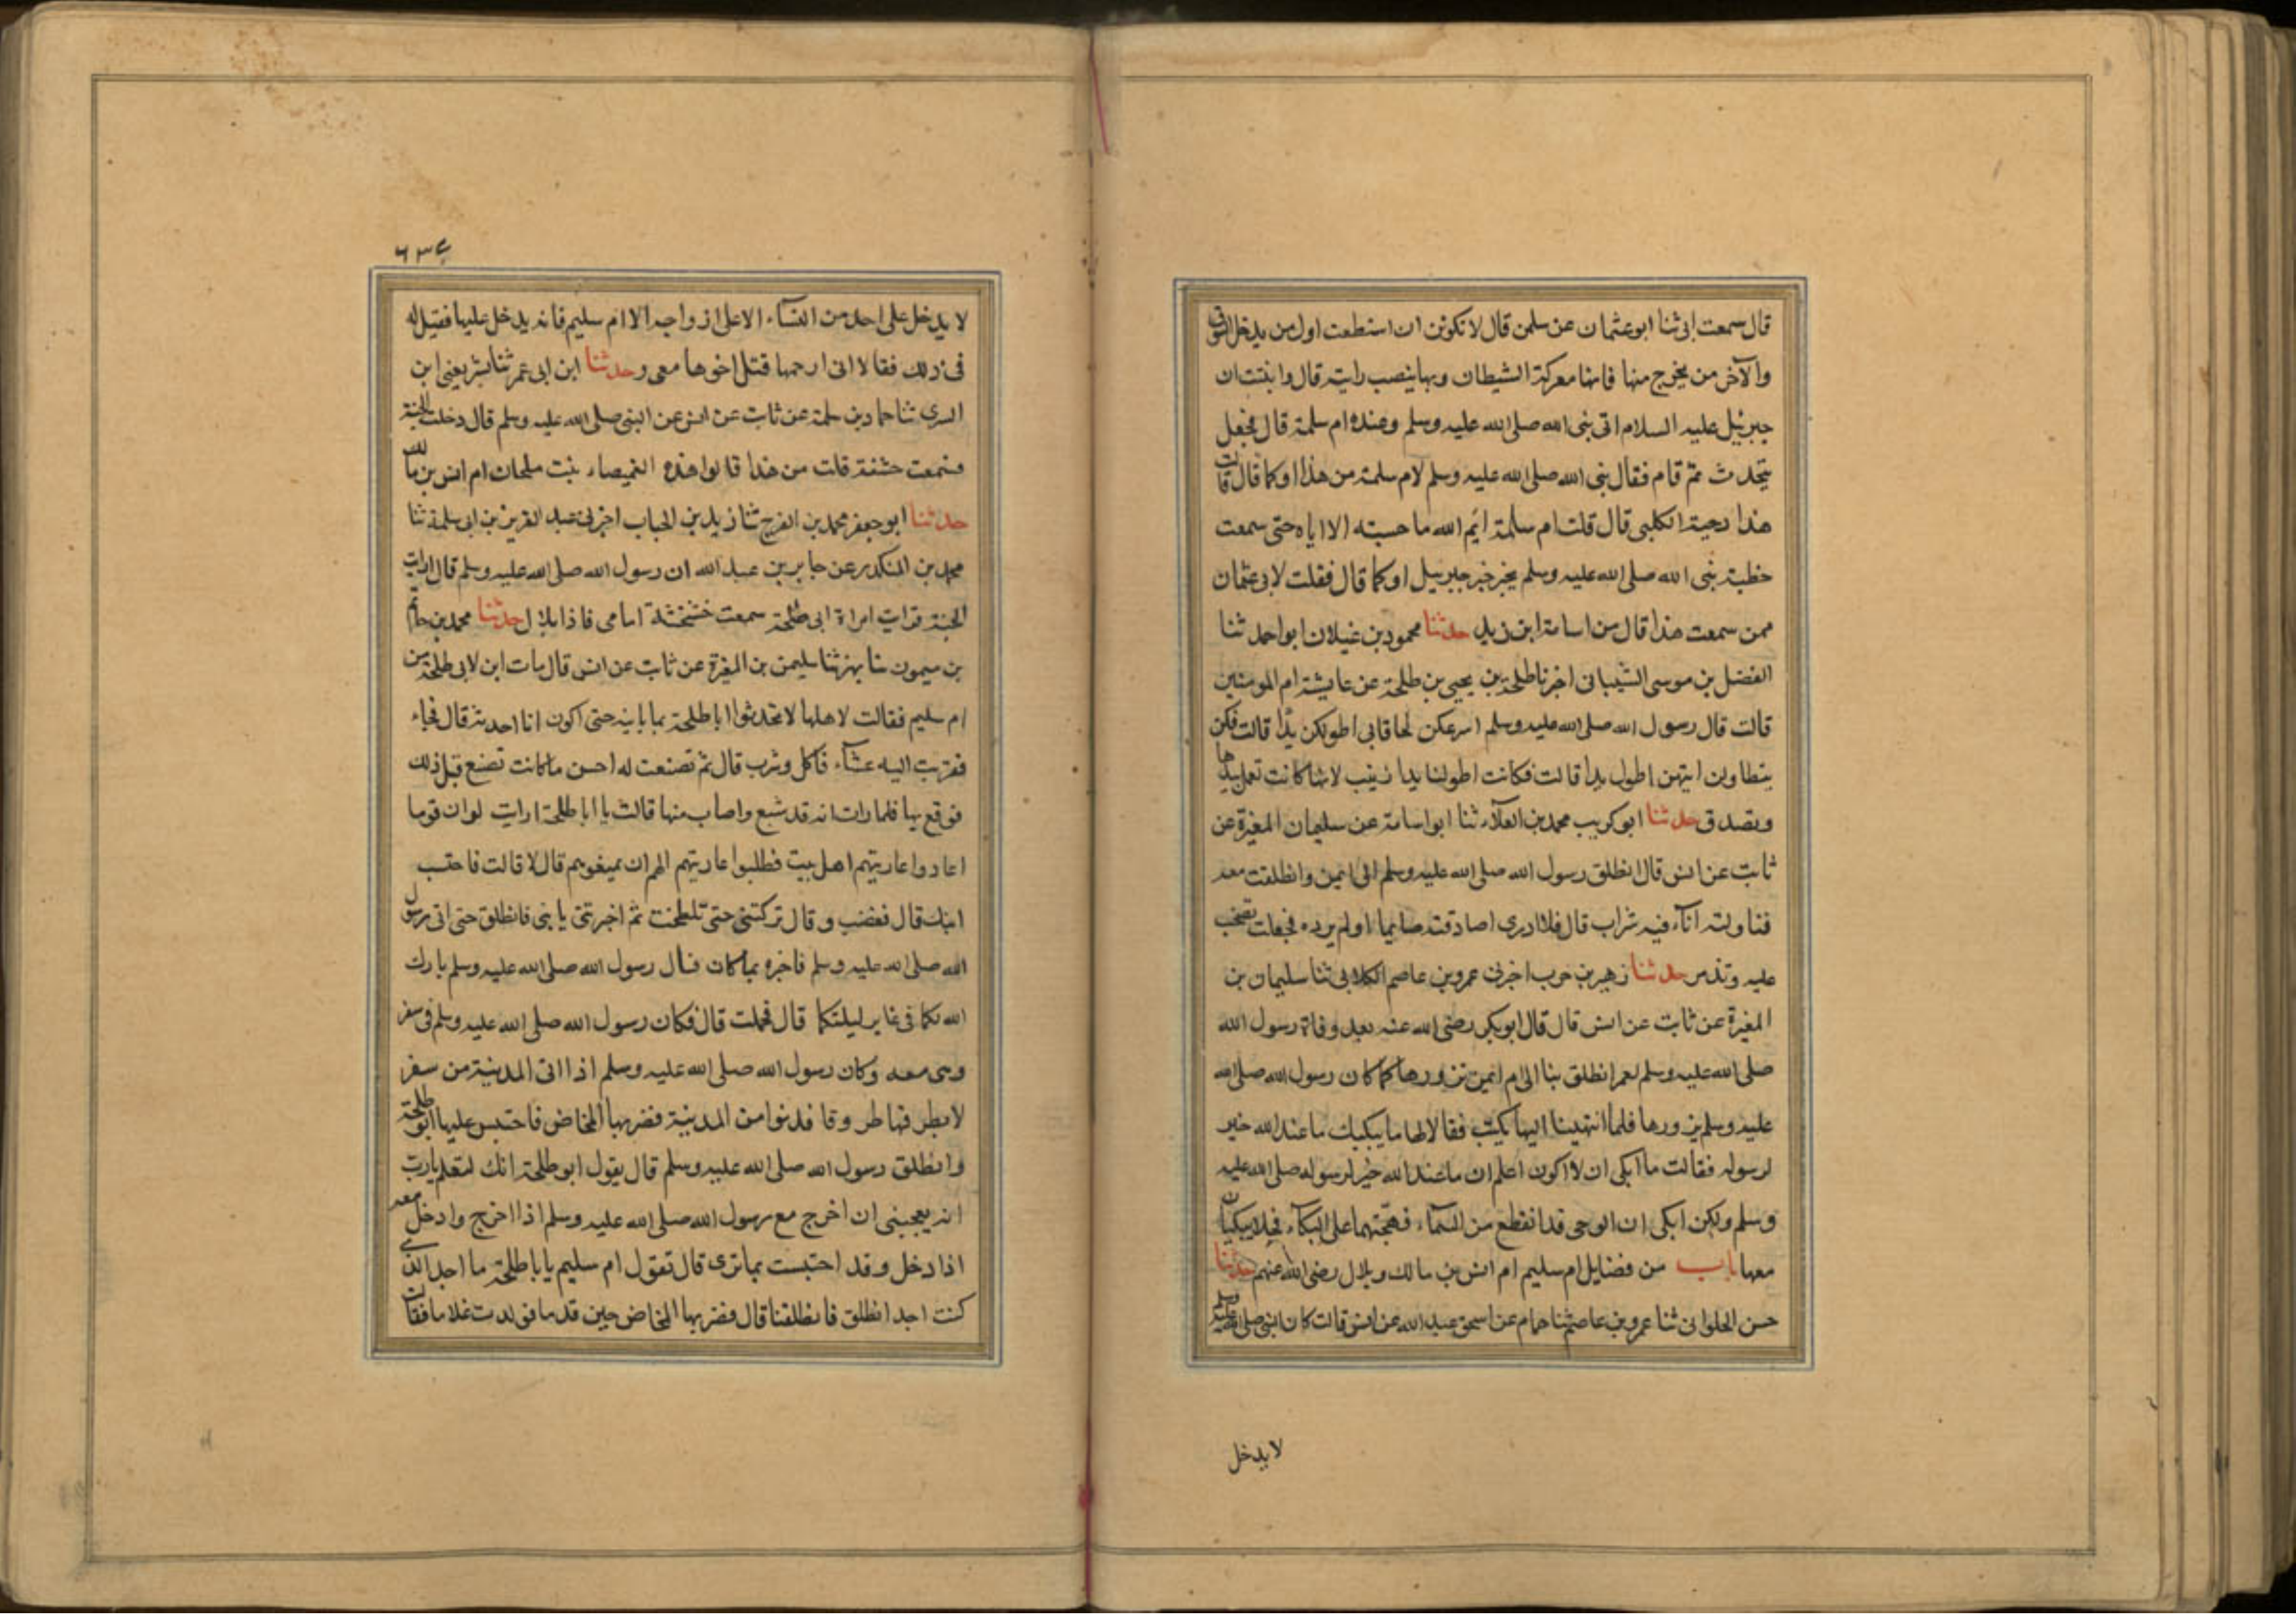 قال سمعت ابى ثنا ابو عثمان عن سلمن قال لا تكونن ان استطعت اول من يدخل السوق
والآخر من يخرج منها فانها معركة الشيطان وبها ينصب رايته قال وانبئت ان
جبرئيل عليه السلام اتى نبى الله صلى الله عليه وسلم وعنده ام سلمة قال فجعل
يتحدث ثم قام فقال نبى الله صلى الله عليه وسلم لام سلمة من هذا اوكما قال قالت
هذا دحية الكلبى قال قلت ام سلمة ايم الله ما حسبته الا اياه حتى سمعت
خطبة نبى الله صلى الله عليه وسلم يخبر خبر جبريل اوكما قال فقلت لابى عثمان
ممن سمعت هذا قال من اسامة ابن زيد حدثنا محمود بن غيلان ابو احمد ثنا
الفضل بن موسى الشيبانى اخبرنا طلحة بن يحيى بن طلحة عن عايشة ام المومنين
قالت قال رسول الله صلى الله عليه وسلم اسرعكن لحاقا بى اطولكن يدًا قالت فكن
يتطاولن ايتهن اطول يدا قالت فكانت اطولنا يدا زينب لانها كانت تعمل بيدها
وتصدق حدثنا ابو كريب محمد بن العلآء ثنا ابو اسامة عن سليمان المغيرة عن
ثابت عن انس قال انطلق رسول الله صلى الله عليه وسلم الى ام ايمن وانطلقت معه
فناولته انآء فيه شراب قال فلا ادرى اصادقته صايما اولم يرده فجعلت تصخب
عليه وتذمر حدثنا زهير بن حرب اخبرنى عمرو بن عاصم الكلابى ثنا سليمان بن
المغيرة عن ثابت عن انس قال قال ابو بكر رضى الله عنه بعد وفاة رسول الله
صلى الله عليه وسلم لعمر انطلق بنا الى ام ايمن نزورها كما كان رسول الله صلى الله
عليه وسلم يزورها فلما انتهينا اليها بكت فقالا لها ما يبكيك ما عند الله خير
لرسوله فقالت ما ابكى ان لا اكون اعلم ان ما عند الله خير لرسوله صلى الله عليه
وسلم ولكن ابكى ان الوحى قد انقطع من السمآء فهيجتهما على البكآء فجعلا يبكيان
معها باب من فضايل ام سليم ام انس بن مالك وبلال رضى الله عنهم حدثنا
حسن الحلوانى ثنا عمرو بن عاصم ثنا همام عن اسحق عبد الله عن انس قالت كان النبى صلى الله عليه وسلم
لا يدخل
٦٣٤
لا يدخل على احد من النسآء الا على ازواجه الا ام سليم فانه يدخل عليها فقيل له
فى ذلك فقالا انى ارحمها قتل اخوها معى وحدثنا ابن ابى عمر ثنا بشر يعنى ابن
السرى ثنا حماد بن سلمة عن ثابت عن انس عن النبى صلى الله عليه وسلم قال دخلت الجنة
فسمعت خشفة قلت من هذا قالوا هذه الغميصاء بنت ملحان ام انس بن مالك
حدثنا ابو جعفر محمد بن الفرج ثنا زيد بن الحباب اخبرنى عبد العزيز بن ابى سلمة ثنا
محمد بن المنكدر عن جابر بن عبد الله ان رسول الله صلى الله عليه وسلم قال اريت
الجنة فرايت امراة ابى طلحة سمعت خشخشة امامى فاذا بلال حدثنا محمد بن حاتم
بن ميمون ثنا بهز ثنا سليمن بن المغيرة عن ثابت عن انس قال مات ابن لابى طلحة من
ام سليم فقالت لاهلها لا تحدثوا ابا طلحة بما بابنه حتى اكون انا احدثه قال فجاء
فقربت اليه عشآء فاكل وشرب قال ثم تصنعت له احسن ما كانت تصنع قبل ذلك
فوقع بها فلما رات انه قد شبع واصاب منها قالت يا ابا طلحة ارايت لو ان قوما
اعادوا عاريتهم اهل بيت فطلبوا عاريتهم الهم ان يمنعوهم قال لا قالت فاحتسب
ابنك قال فغضب وقال تركتنى حتى تلطخت ثم اخبرتنى يا بنى فانطلق حتى اتى رسول
الله صلى الله عليه وسلم فاخبره بما كان فقال رسول الله صلى الله عليه وسلم بارك
الله لكما فى غابر ليلتكما قال فحملت قال فكان رسول الله صلى الله عليه وسلم فى سفر
وهى معه وكان رسول الله صلى الله عليه وسلم اذا اتى المدينة من سفر
لا يطرقها طروقا فدنوا من المدينة فضربها المخاض فاحتبس عليها ابو طلحة
وانطلق رسول الله صلى الله عليه وسلم قال يقول ابو طلحة انك لتعلم يارب
انه يعجبنى ان اخرج مع رسول الله صلى الله عليه وسلم اذا اخرج وادخل معه
اذا دخل وقد احتبست بما ترى قال تقول ام سليم يابا طلحة ما اجد الذى
كنت اجد انطلق فانطلقنا قال وضربها المخاض حين قدما فولدت غلاما فقالت